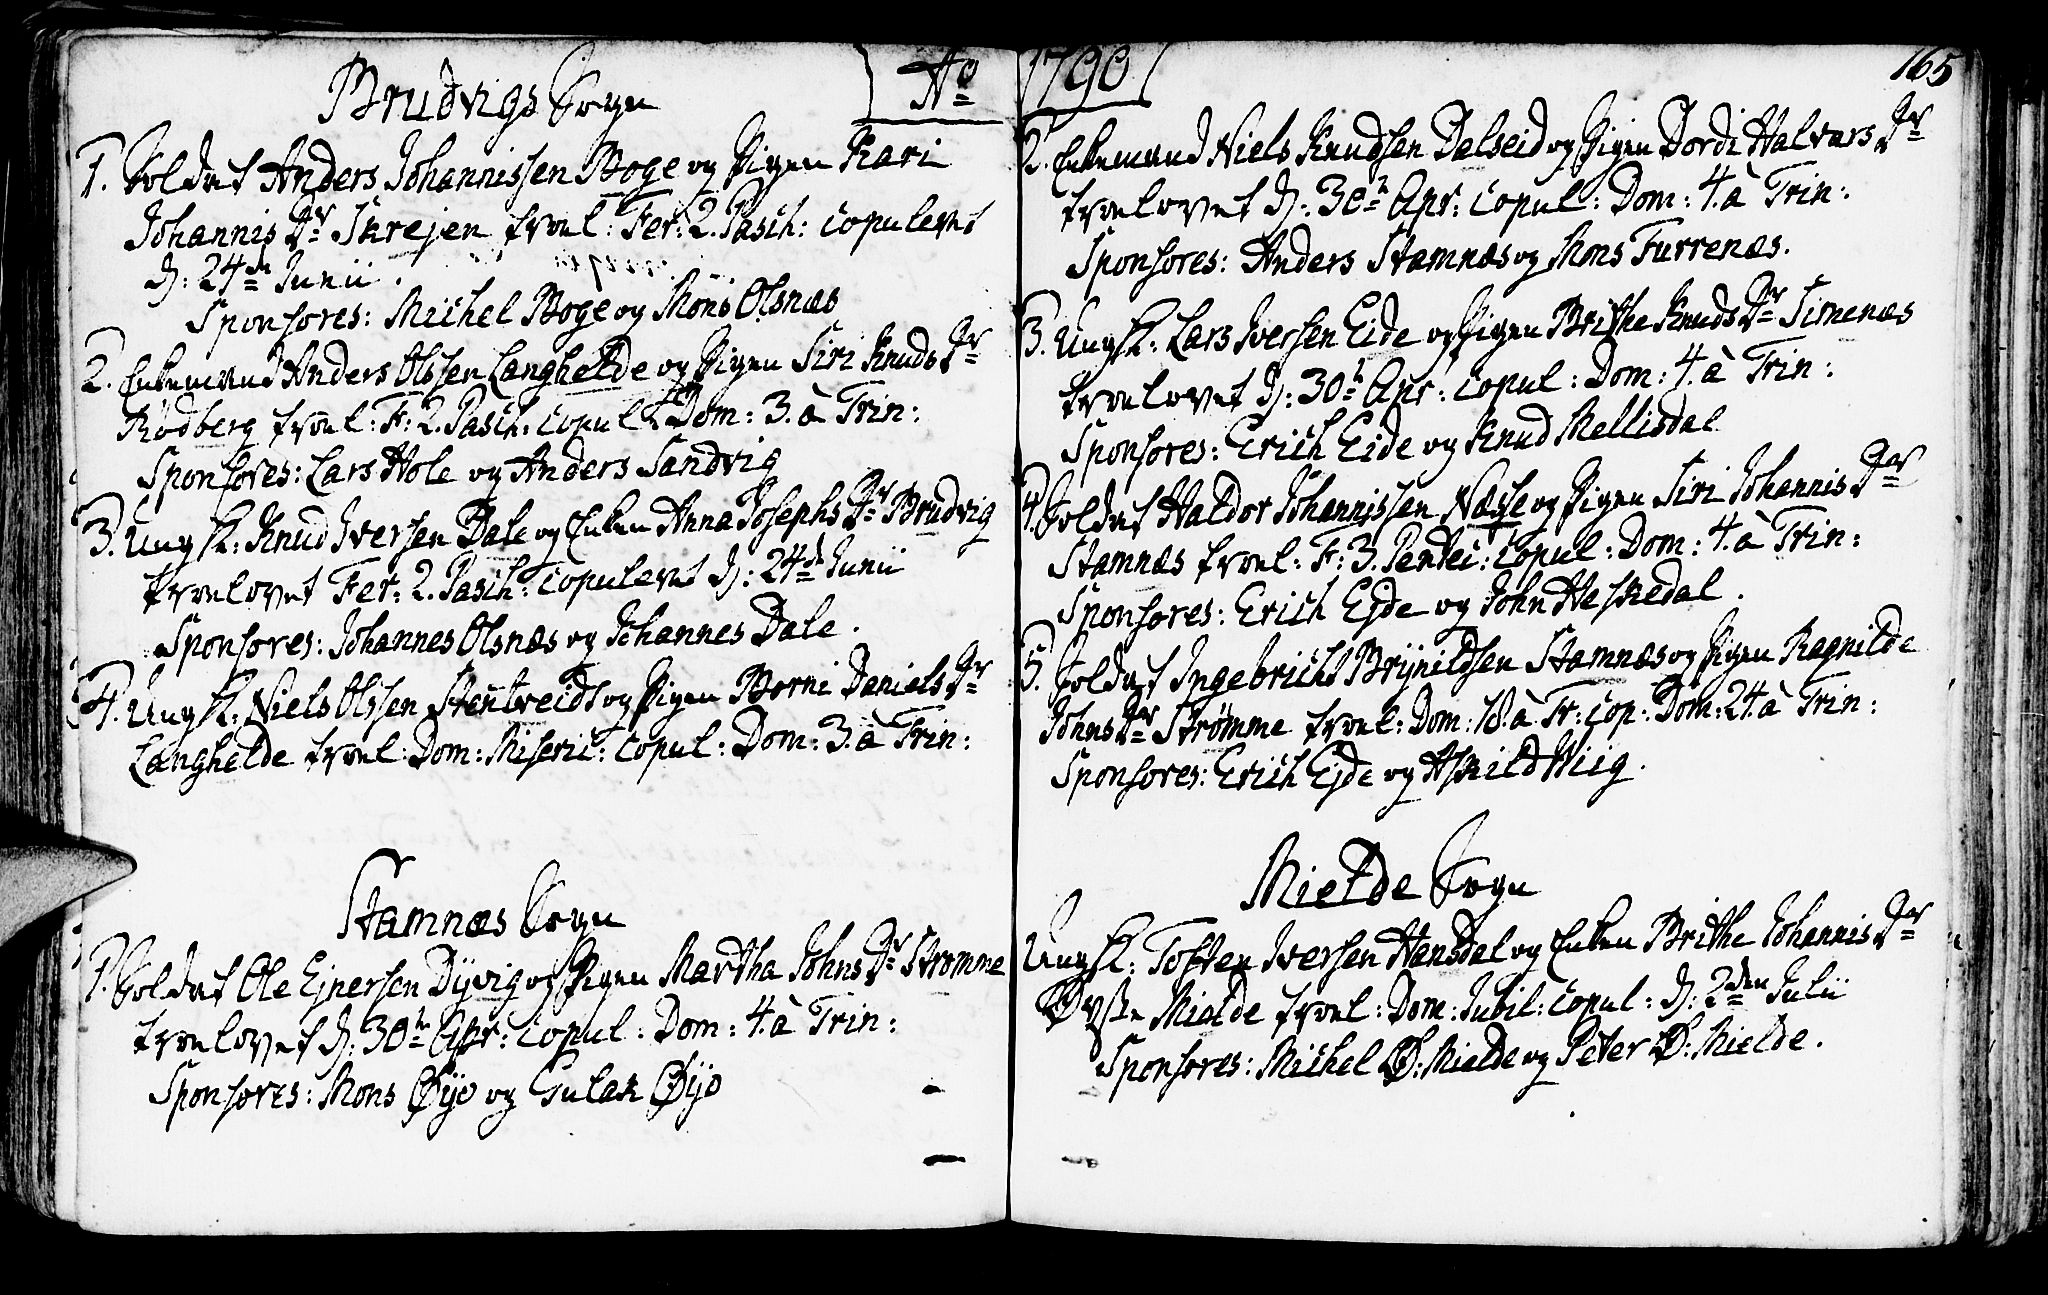 Brudvigs Sogn
Ao
1. Soldat Anders Johannissen Boge og Pigen Kari
Johannis Dr Skrejen troel: Fer: 2. Pasch: copuleret
d: 24de Junii.
Sponsores: Michel Boge og Mons Olsnæs
2. Enkemand Anders Olssen Langhelde og Pigen Siri Knuds Dr
Rødberg troel: F: 2. Pasch: copul: Dom: 3. à Trin:
Sponsores: Lars Hole og Anders Sandvig
3. Ungk: Knud Iversen Dale og Enken Anna Josephs Dr Brudvig
troelovet Fer: 2. Pasch: copuleret d: 24de Junii
Sponsores: Johannes Olsnæs og Johannes Dale.
4. Ungk: Niels Olssen og Pigen Borni Daniels Dr
Langhelde troel: Dom: Miseric: copul: Dom: 3. à Trin:
Stamnæs Sogn
1. Soldat Ole Ejnersen Dyvig og Pigen Martha Johns Dr Strømme
troelovet d: 30te Apr: copul: Dom: 4. à Trin:
Sponsores: Mons Øyo og Gulak Øyo
1790
165
2. Enkemand Niels Knudsen Dalseid og Pigen Dordi Halvars Dr
troelovet d: 30te Apr: copul: Dom: 4. à Trin:
Sponsores: Anders Stamnæs og Mons Furrenæs.
3. Ungk: Lars Iversen Eide og Pigen Brithe Knuds Dr Simenæs
troelovet d: 30te Apr: copul: Dom: 4. à Trin:
Sponsores: Erich Eide og Knud Mellisdal
4. Soldat Haldor Johannissen Næse og Pigen Siri Johannis Dr
Stamnæs troel: F: 3. Pentec: copul: Dom: 4. à Trin:
Sponsores: Erich Ejde og John Heskedal.
5. Soldat Ingebricht Brynildsen Stamnæs og Pigen Ragnilde
Johns Dr Strømme troel: Dom: 18. à Tr: cop: Dom: 24. à Trin:
Sponsores: Erich Ejde og Askild Wiig.
Mielde Sogn
Ungk: Tosten Iversen Hansdal og Enken Brithe Johannis Dr
Mielde troel: Dom: Jubil: copul: d: 2den Julii
Sponsores: Michel Ø: Mielde og Peter Ø: Mielde.